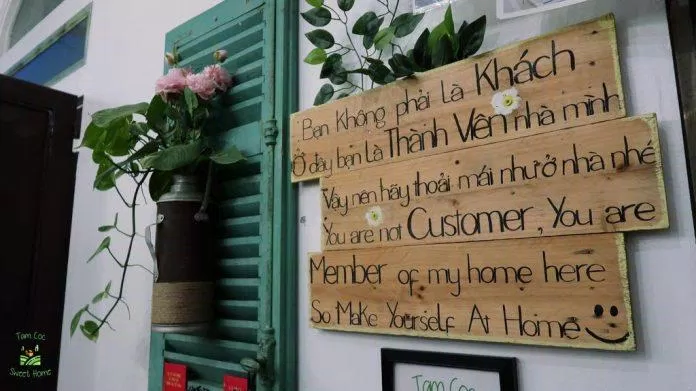 Bạn Không phải là Khách
Ở đây bạn là Thành Viên nhà mình
Vậy nên hãy thoải mái như ở nhà nhé
You are not Customer, You are
Member of my home here
So Make Yourself At Home
Tam Coc
Tam Coc
Sweet Home